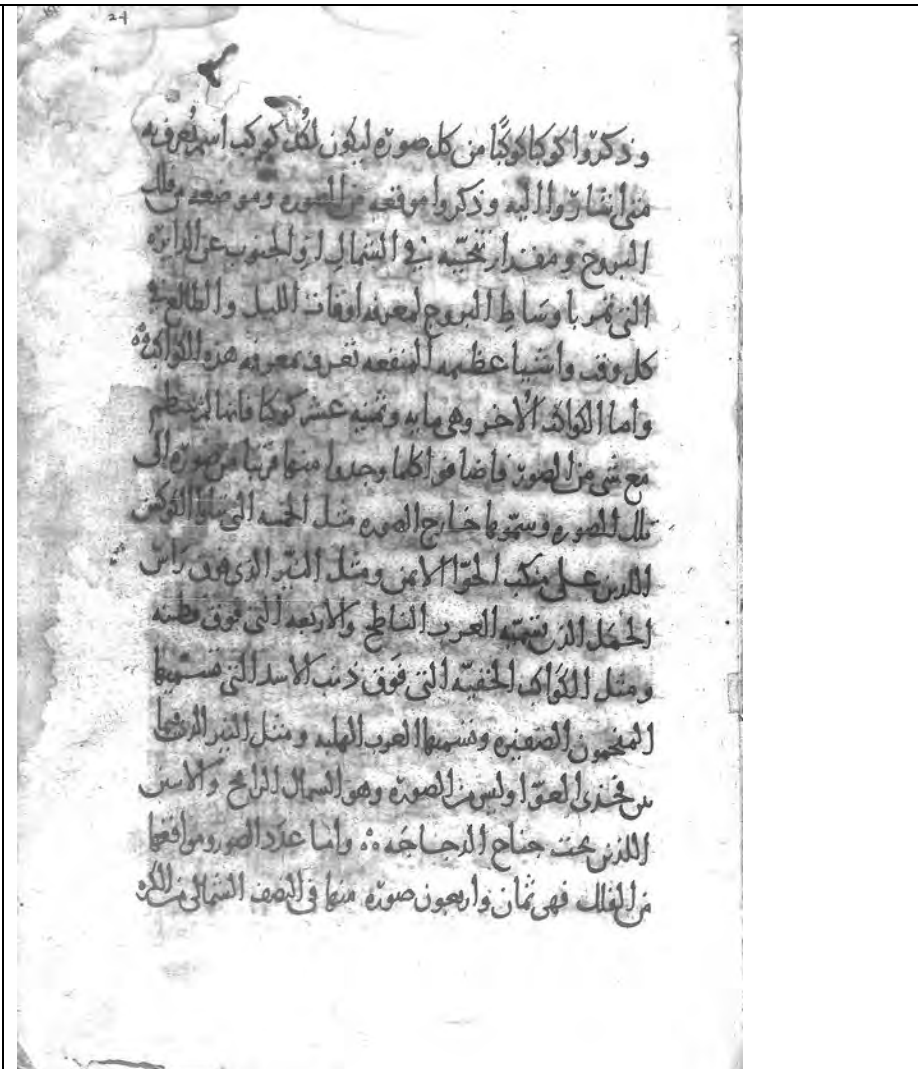 24
وذكروا كوكبا كوكبًا من كل صورة ليكون لكل كوكب اسم يُعرف به
متى اشاروا اليه وذكروا موقعه من الصوره وموضعه من فلك
البروج ومقدار تنحيّه في الشمال او الجنوب عن الدائرة
التي تمر باوساط البروج لمعرفه اوقات الليل والطالع في
كل وقت واشيا عظيمه المنفعه تعرف بمعرفه هذه الكواكب ه
واما الكواكب الأخر وهي مايه وثمنيه عشر كوكبا فانها لم تنتظم
مع شي من الصور فاضافوا كلما وجدوا منها قريبا من صوره الى
تلك الصوره وسمّوها خارج الصوره مثل الخمسه التي الكوكبين
اللذين على منكب الحوّا الايمن ومثل النيّر الذي فوق راس
الحمل الذي تسميه العرب الناطح والاربعه التي فوق قطنه
ومثل الكواكب الخفيّه التي فوق ذنب الاسد التي تسميها
المنجمون الضفيره وتسميها العرب الهلبه ومثل النير الذي
بين فخذي العوّا وليس من الصوره وهو السماك الرامح والاثنين
اللذين تحت جناح الدجاجه ه ه واما عدد الصور ومواقعها
من الفلك فهي ثمان واربعون صوره منها في النصف الشمالي من الكره